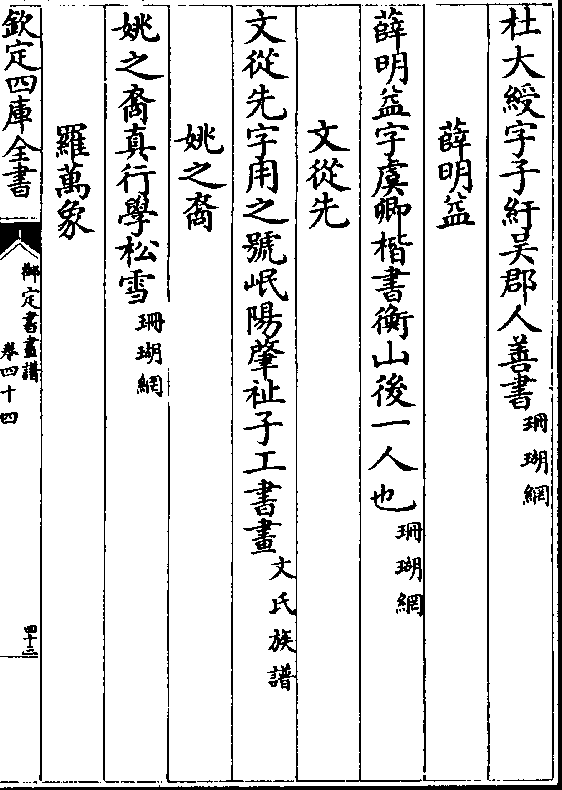 杜大綬字子紆吴郡人善書珊瑚網
薛明益
薛明益字虞卿楷書衡山後一人也珊瑚網
文從先
文從先字用之號岷陽肇祉子工書畫文氏族譜
姚之裔
姚之裔真行學松雪珊瑚網
羅萬象
欽定四庫全書
御定書畫譜
卷四十四
四十三